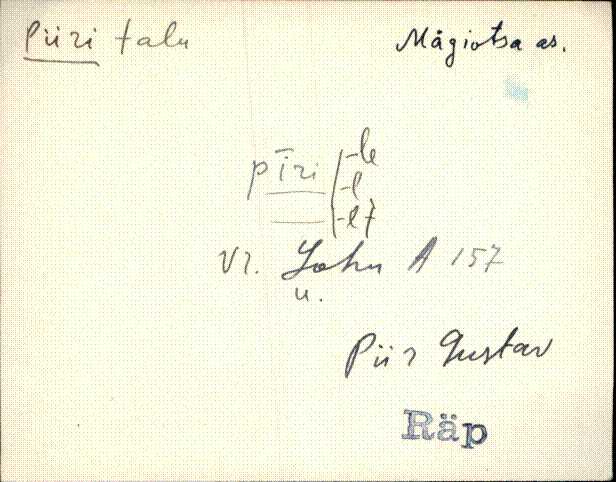 Piiri talu
Mägiotsa as.
pīri -le
-l
-lt
Vr. John A 157
u.
Piir Gustav
Räp